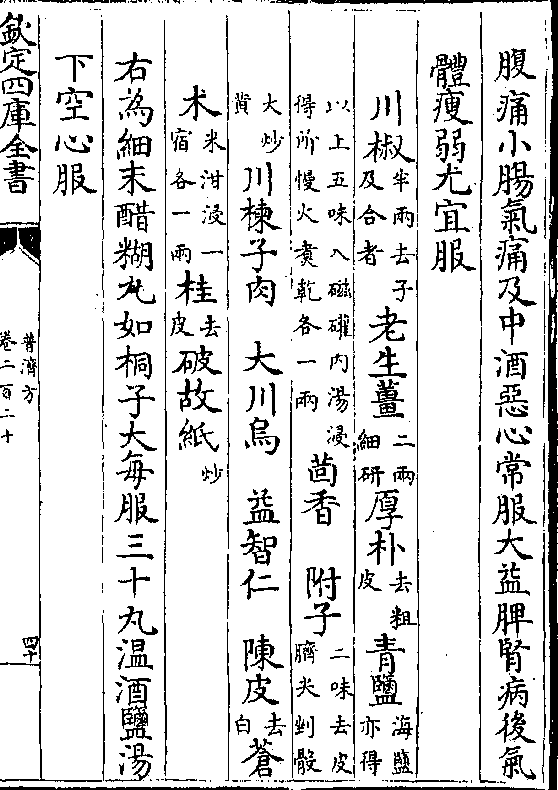 腹痛小腸氣痛及中酒惡心常服大益脾腎病後氣
體瘦弱尤宜服
川椒半兩去子及合者 老生薑二兩細研 厚朴去粗皮 青鹽海鹽亦得
以上五味入磁礶内湯浸得所慢火煑乾各一兩 茴香 附子二味去皮臍尖剉骰
大炒黄 川楝子肉 大川烏 益智仁 陳皮去白 蒼
术米泔浸一宿各一兩 桂去皮 破故紙炒
右為細末醋糊丸如桐子大每服三十丸温酒鹽湯
下空心服
欽定四庫全書
普濟方
卷二百二十
四十